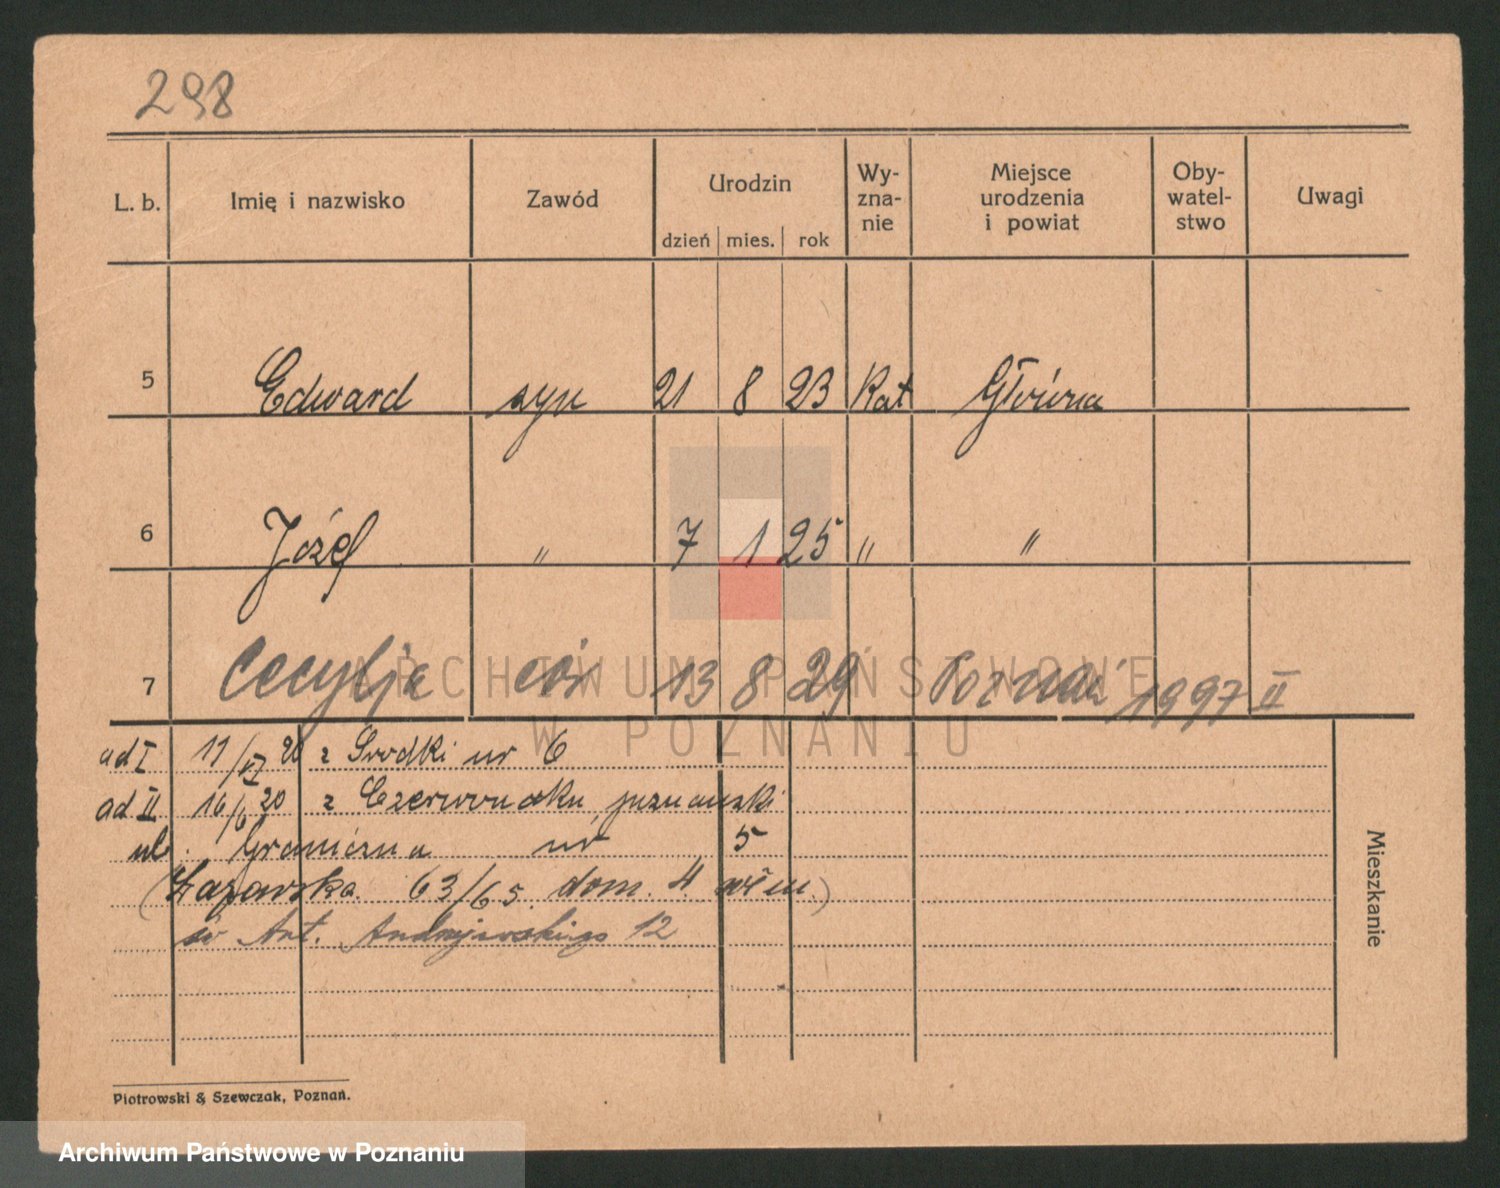 298
L. b. Imię i nazwisko Zawód Urodzin dzień mies. rok Wy-zna-nie Miejsce urodzenia i powiat Oby-watel-stwo Uwagi
5 Edward syn 21 8 23 Kat Główna
6 Józef " 7 1 25 " "
7 Cecylja cór 13 8 29 Poznań 1997 II
ARCHIWUM PAŃSTWOWE
W POZNANIU
ad I 17/VI 20 z Środki nr 6
ad II 16/6 20 z Czerwonaku
ul. Graniczna nr 5
63/65. dom. 4
św Ant. Andrzejewskiego 12
Mieszkanie
Piotrowski & Szewczak, Poznań.
Archiwum Państwowe w Poznaniu